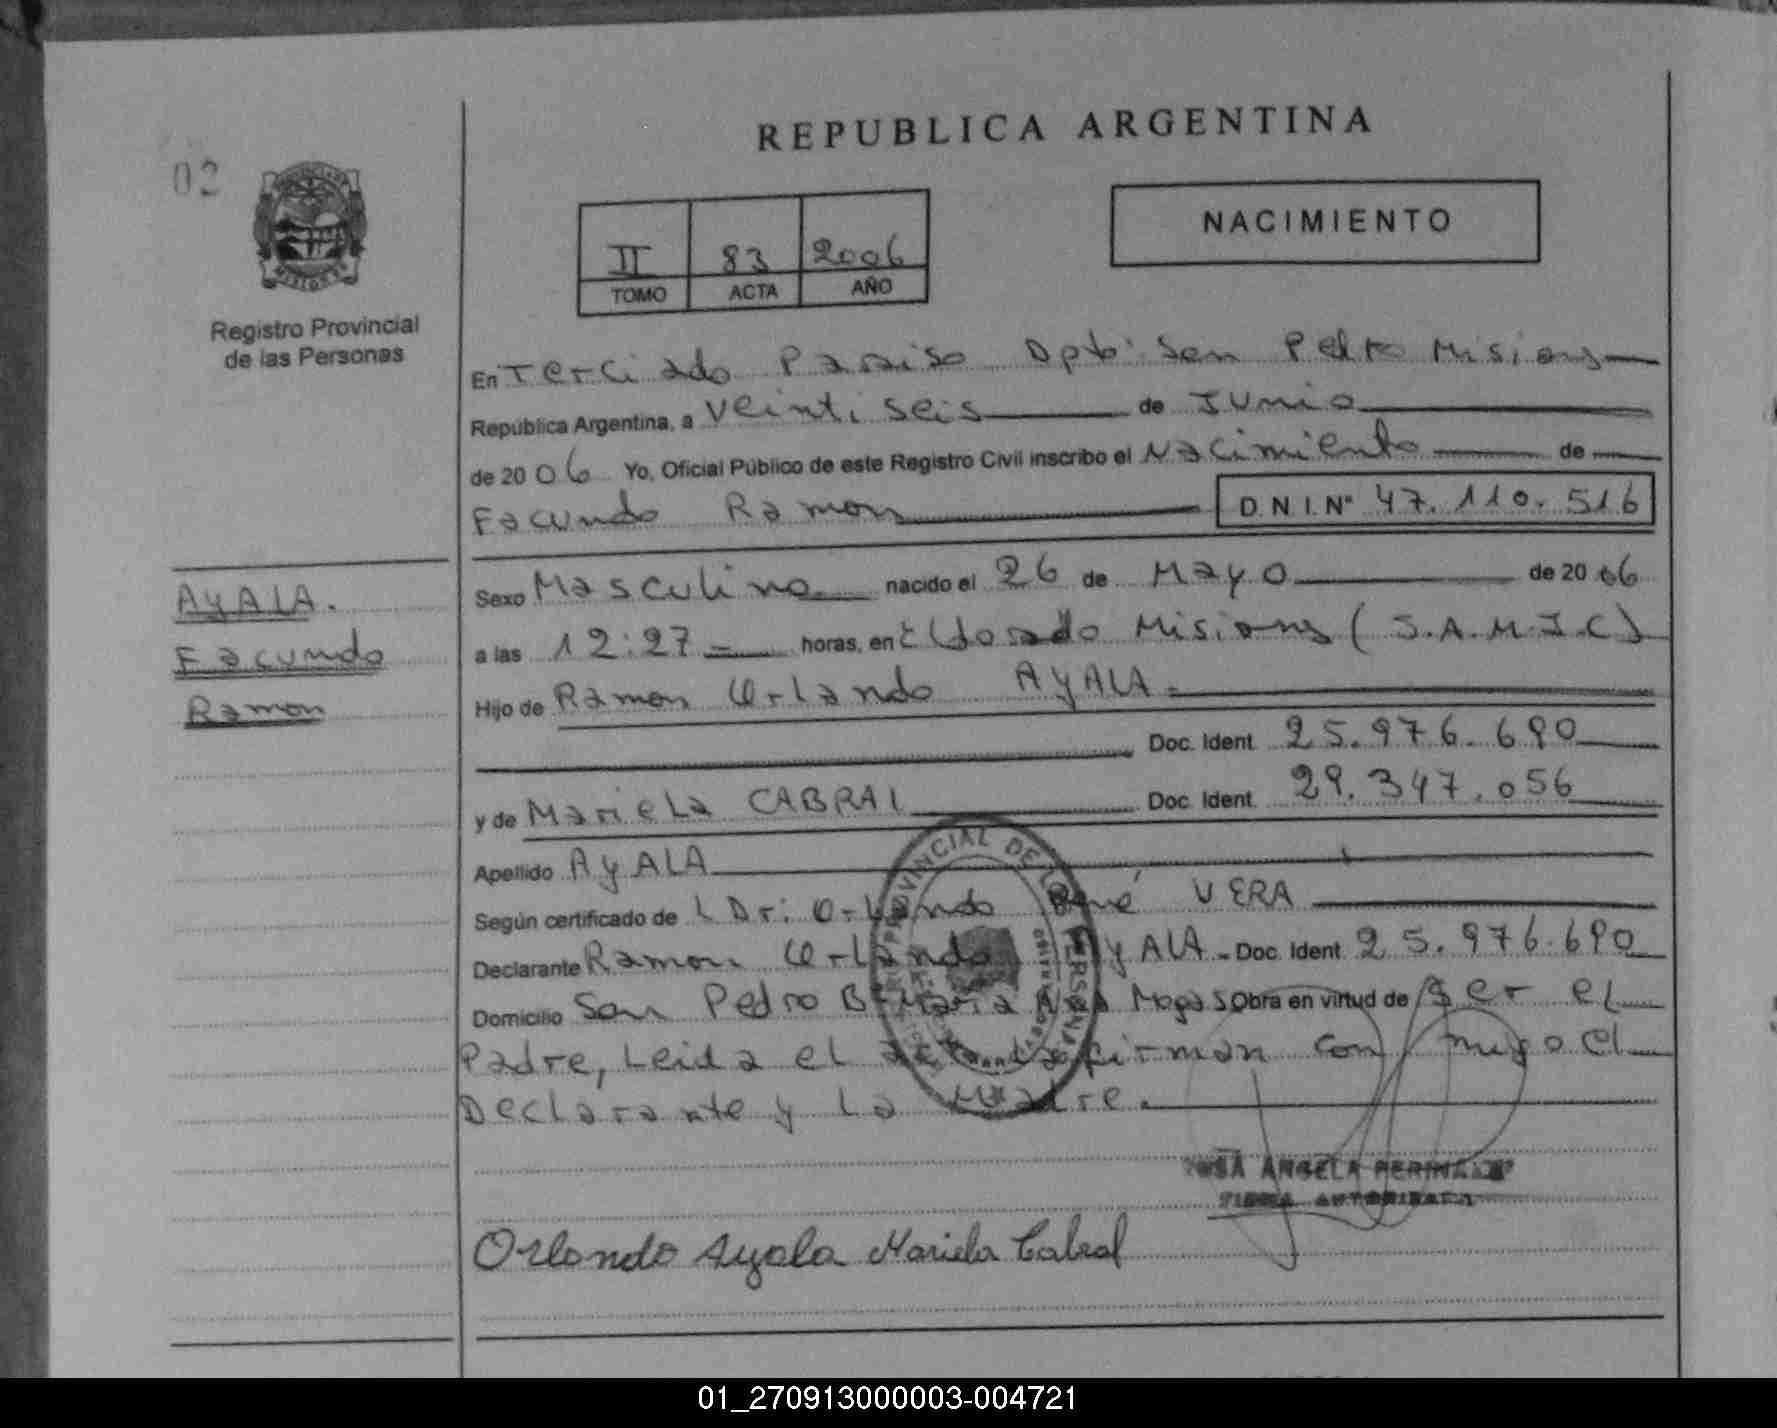 REPUBLICA ARGENTINA
02
NACIMIENTO
II 83 2006
TOMO ACTA AÑO
Registro Provincial
de las Personas
En Terciado Paraiso Dpto: San Pedro Misiones
República Argentina, a Veintiseis de Junio
de 2006 Yo, Oficial Público de este Registro Civil inscribo el Nacimiento de
Facundo Ramon D.N.I.Nº 47.110.516
AYALA.
Facundo
Ramon
Sexo Masculino nacido el 26 de Mayo de 2006
a las 12:27 horas, en Eldorado Misiones (S.A.M.I.C)
Hijo de Ramon Orlando AYALA
Doc. Ident. 25.976.690
y de Mariela CABRAL Doc. Ident. 29.347.056
Apellido AYALA
Según certificado de L Dr: Orlando René VERA
Declarante Ramon Orlando AYALA Doc. Ident. 25.976.690
Domicilio San Pedro Bº Maria Mogas Obra en virtud de Ser el
Padre, Leida el acta La firman con migo el
Declarante y La Madre.
PROVINCIAL DE LAS PERSONAS
ROSA ANGELA
FIRMA AUTORIZADA
Orlando Ayala Mariela Cabral
01_270913000003-004721